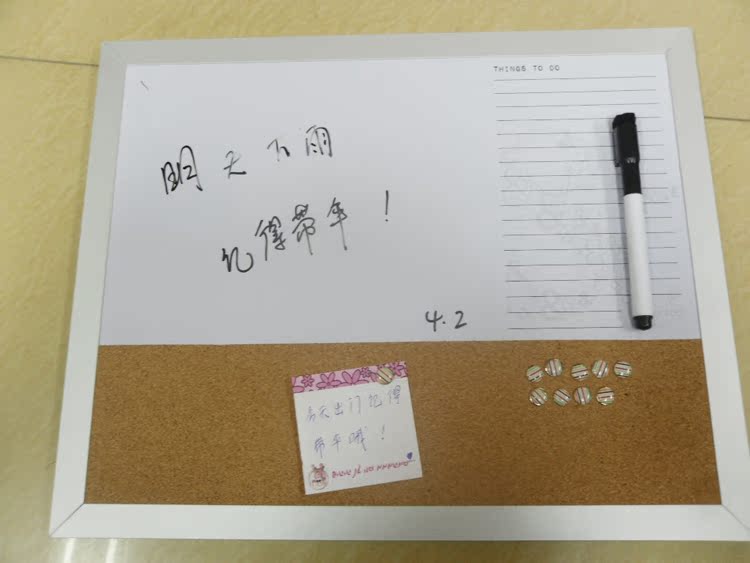 明天下雨
记得带伞！
4.2
THINGS TO DO
天出门记得
带伞哦！